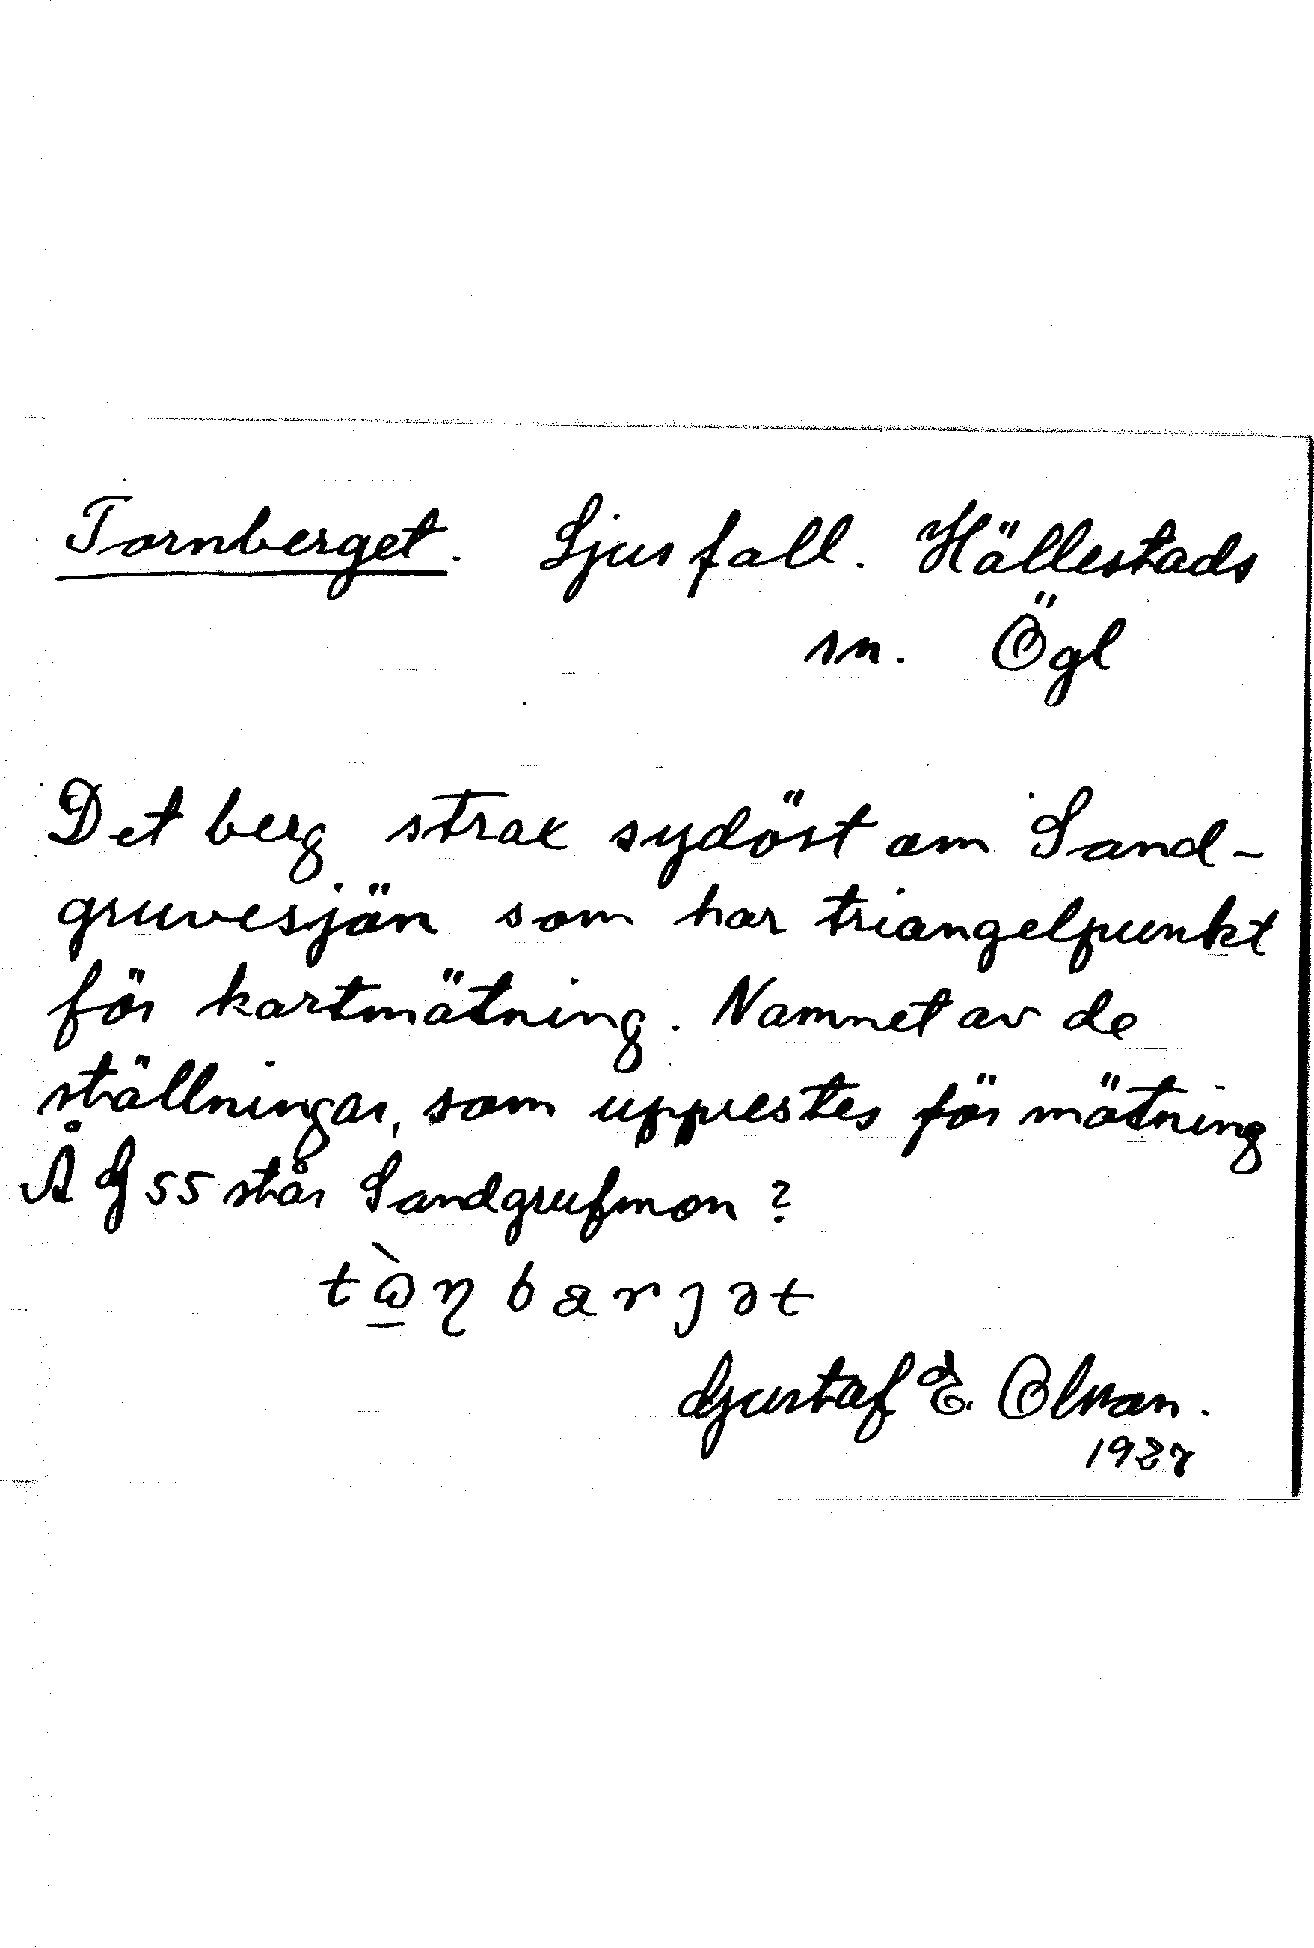 Tornberget. Ljusfall. Hällestads
sn. Ögl
Det berg strax sydöst om Sand-
gruvesjön som har triangelpunkt
för kartmätning. Namnet av de
ställningar, som upprestes för mätning
Å G 55 står Sandgrufmon?
tὼꞃbærjət
Gustaf E. Olson.
1937